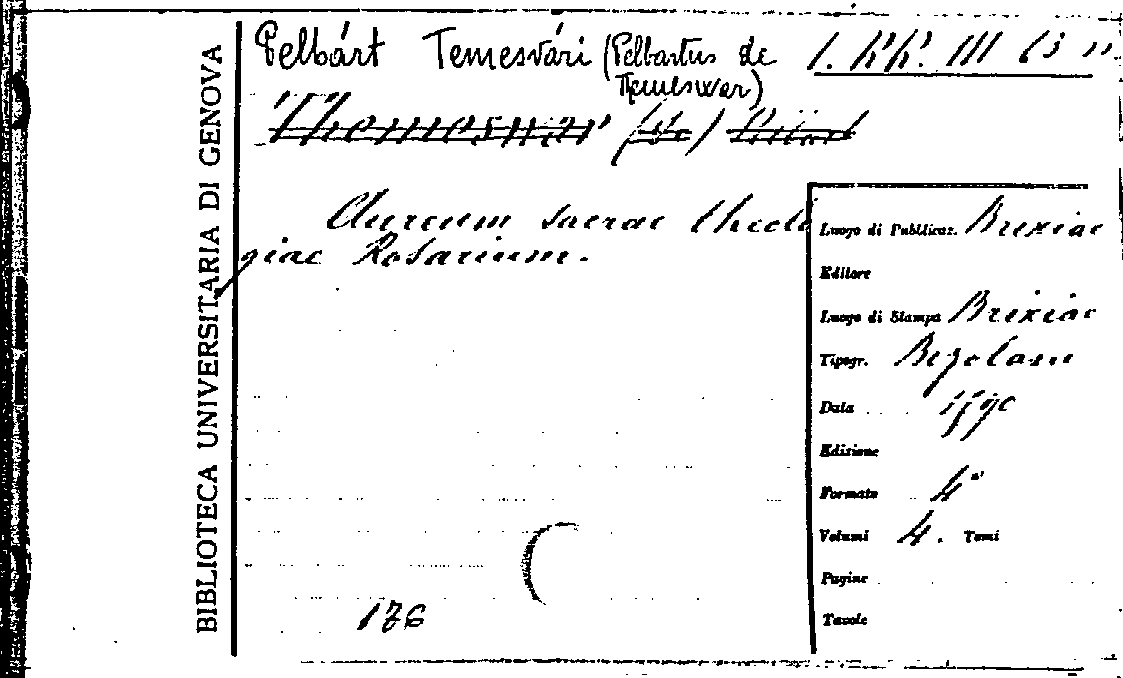 BIBLIOTECA UNIVERSITARIA DI GENOVA
Pelbárt Temesvári (Pelbartus de
Temeswar)
Themeswar (de)
Aureum sacrae theolo
giae Rosarium.
Luogo di Pubblicaz. Brixiae
Editore
Luogo di Stampa Brixiae
Tipogr.
Data 1590
Edizione
Formato 4°
Volumi 4. Tomi
Pagine
Tavole
176